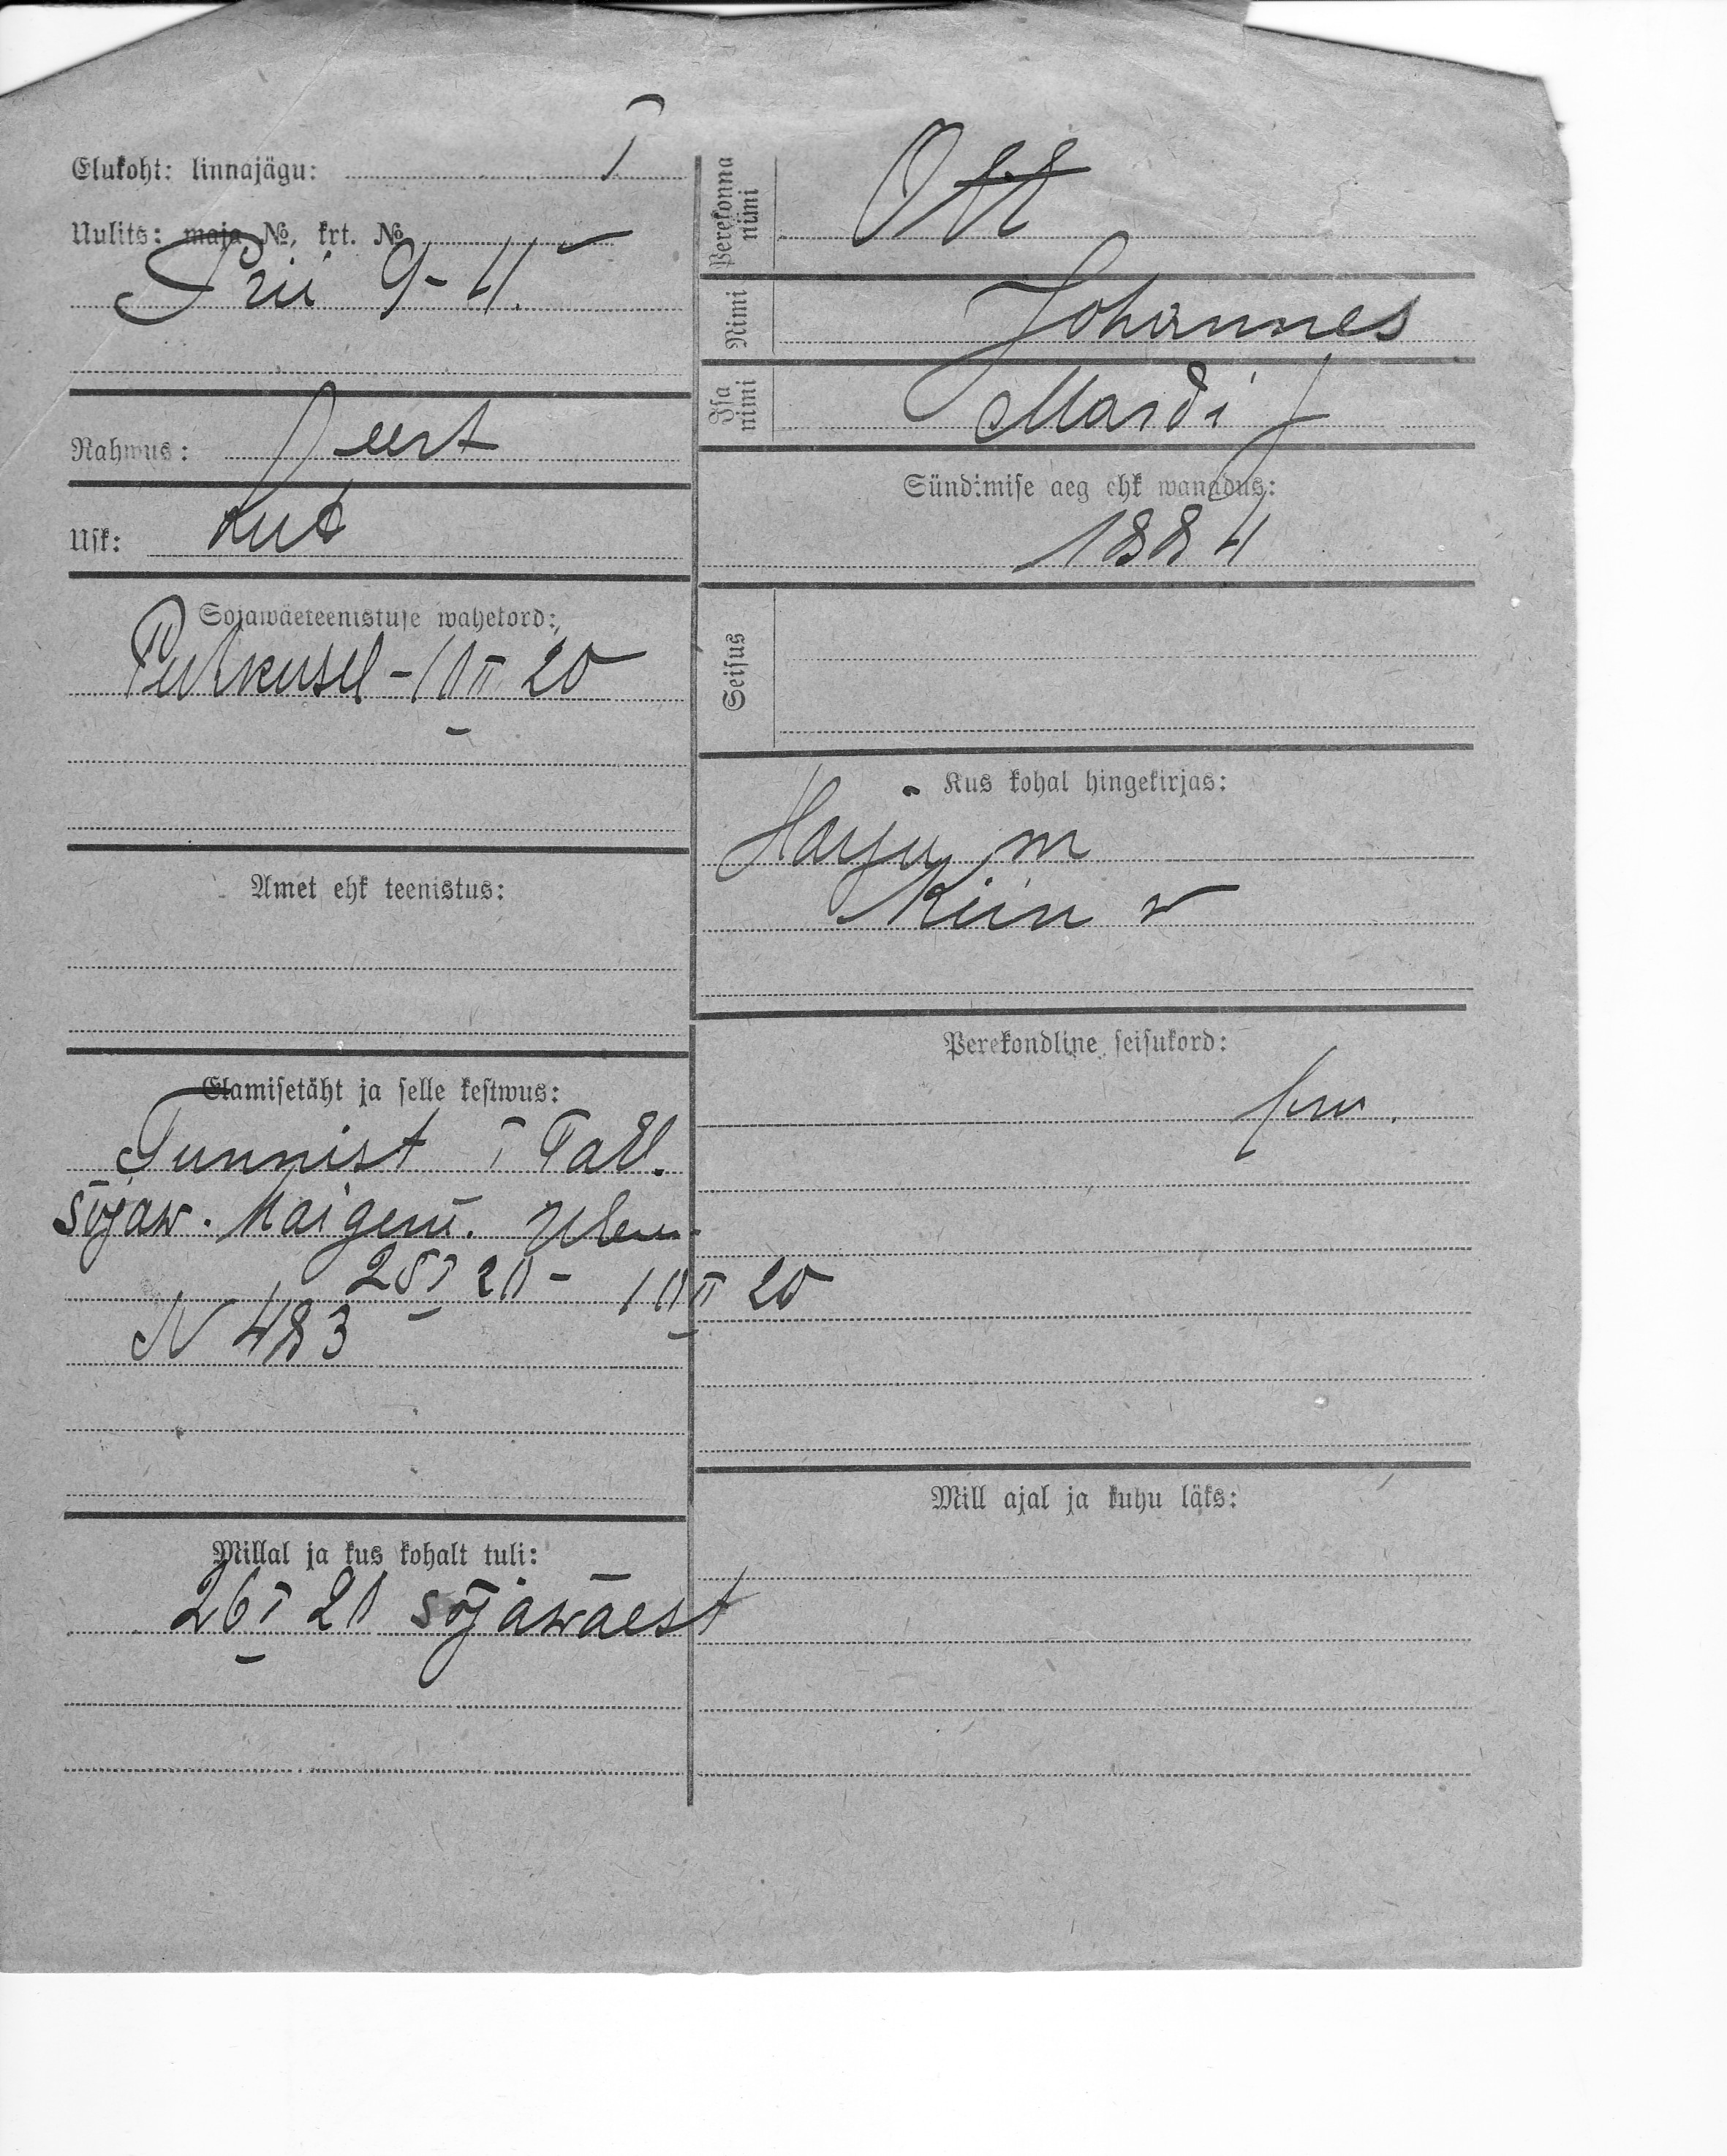 Elukoht: linnajägu: I
Uulits: maja №, krt. №
Prii 9-11.
Rahwus: eest
Usk: Lut
Sõjawäeteenistuse wahekord:
Puhkusel - 10 II 20
Amet ehk teenistus:
Elamisetäht ja selle kestwus:
Tunnist I Tall.
sõjaw. Haigem. Ulem.
25 I 20 - 10 II 20
N 483
Millal ja kus kohalt tuli:
26 I 20 sõjawäest
Perekonna nimi Ott
Nimi Johannes
Isa nimi Mardi
Sündimise aeg ehk wanadus:
1884
Seisus
Kus kohal hingekirjas:
Harju m
Kiiu w
Perekondline seisukord:
Mill ajal ja kuhu läks: